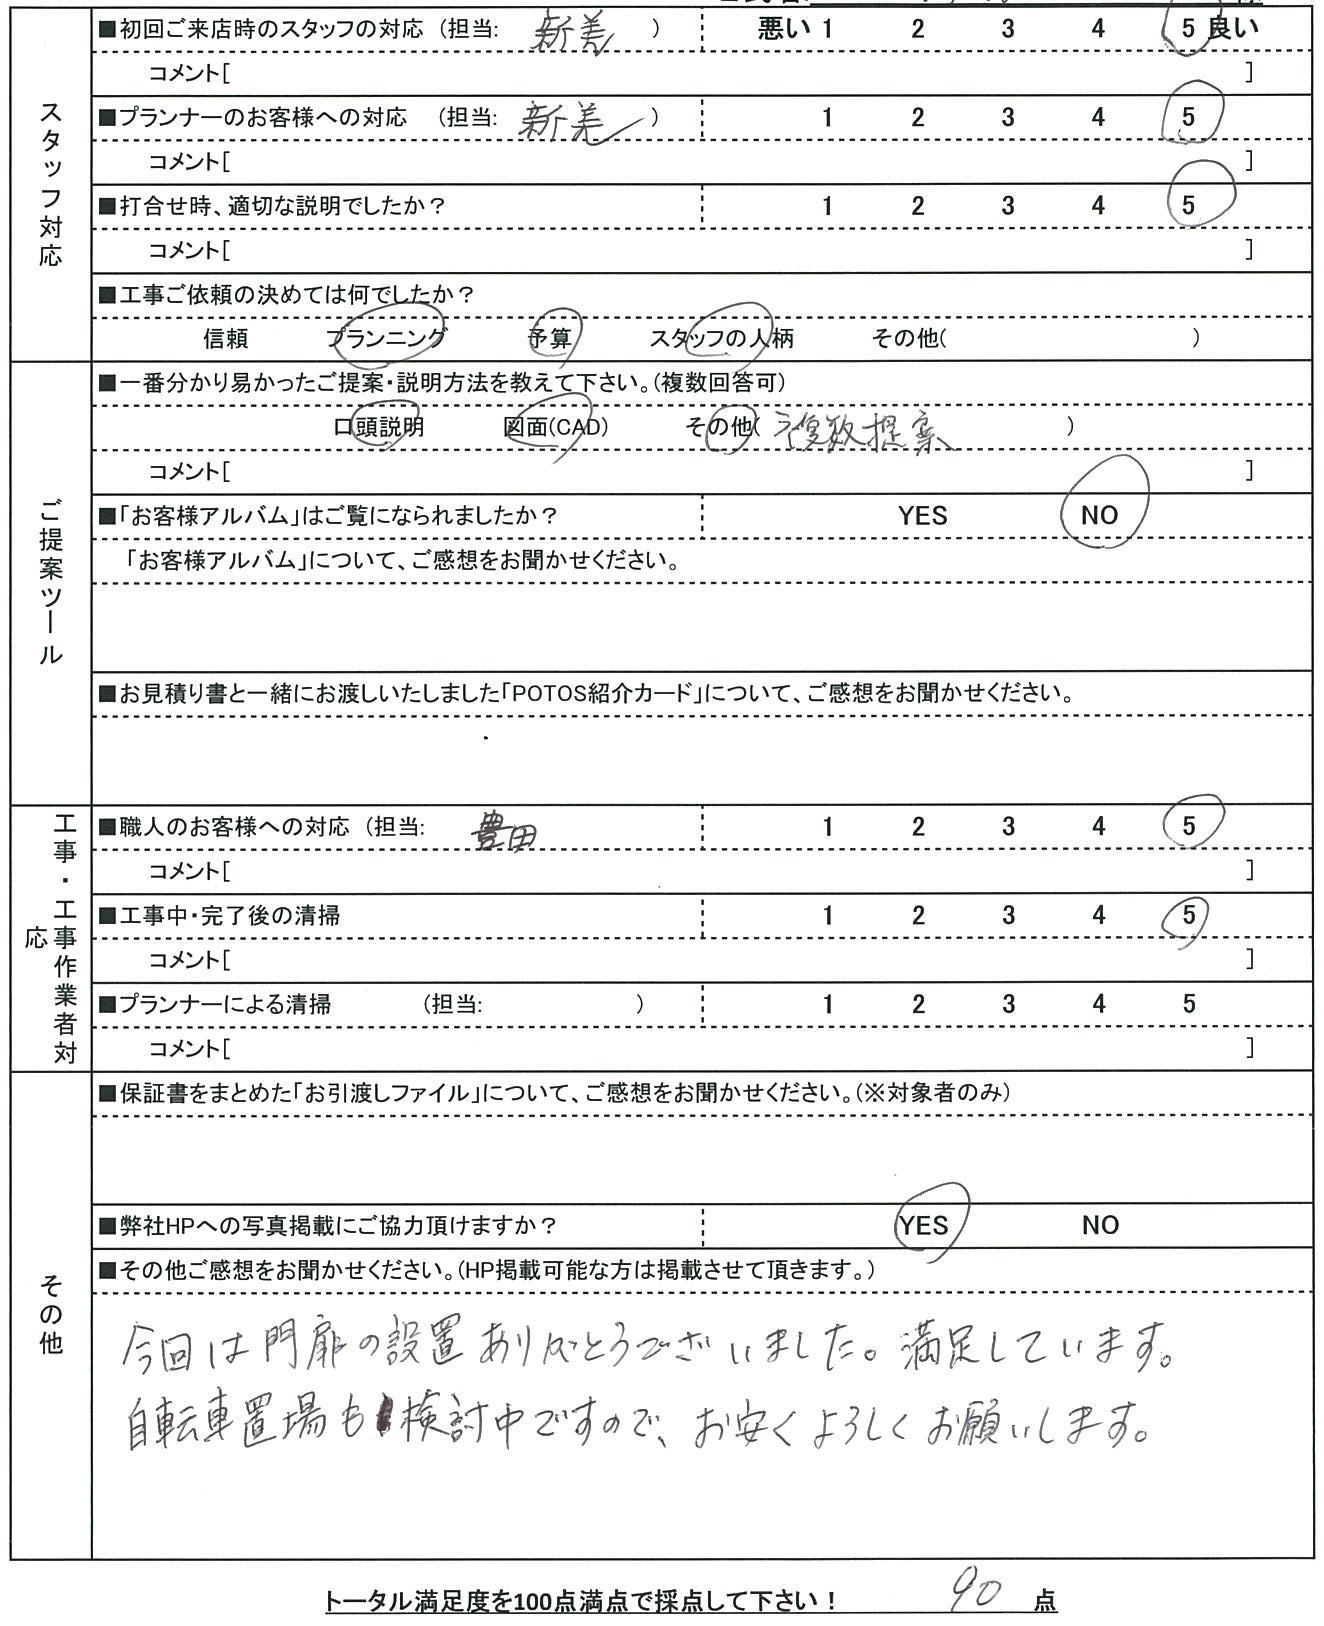 ■初回ご来店時のスタッフの対応 (担当: 新美 ) 悪い 1 2 3 4 5 良い
コメント[ ]
スタッフ対応
■プランナーのお客様への対応 (担当: 新美 ) 1 2 3 4 5
コメント[ ]
■打合せ時、適切な説明でしたか? 1 2 3 4 5
コメント[ ]
■工事ご依頼の決めては何でしたか?
信頼 プランニング 予算 スタッフの人柄 その他( )
■一番分かり易かったご提案・説明方法を教えて下さい。(複数回答可)
口頭説明 図面(CAD) その他( 複数提案 )
コメント[ ]
ご提案ツール
■「お客様アルバム」はご覧になられましたか? YES NO
「お客様アルバム」について、ご感想をお聞かせください。
■お見積り書と一緒にお渡しいたしました「POTOS紹介カード」について、ご感想をお聞かせください。
工事・工事作業者対応
■職人のお客様への対応 (担当: 豊田 1 2 3 4 5
コメント[ ]
■工事中・完了後の清掃 1 2 3 4 5
コメント[ ]
■プランナーによる清掃 (担当: ) 1 2 3 4 5
コメント[ ]
■保証書をまとめた「お引渡しファイル」について、ご感想をお聞かせください。(※対象者のみ)
その他
■弊社HPへの写真掲載にご協力頂けますか? YES NO
■その他ご感想をお聞かせください。(HP掲載可能な方は掲載させて頂きます。)
今回は門扉の設置ありがとうございました。満足しています。
自転車置場も検討中ですので、お安くよろしくお願いします。
トータル満足度を100点満点で採点して下さい! 90 点